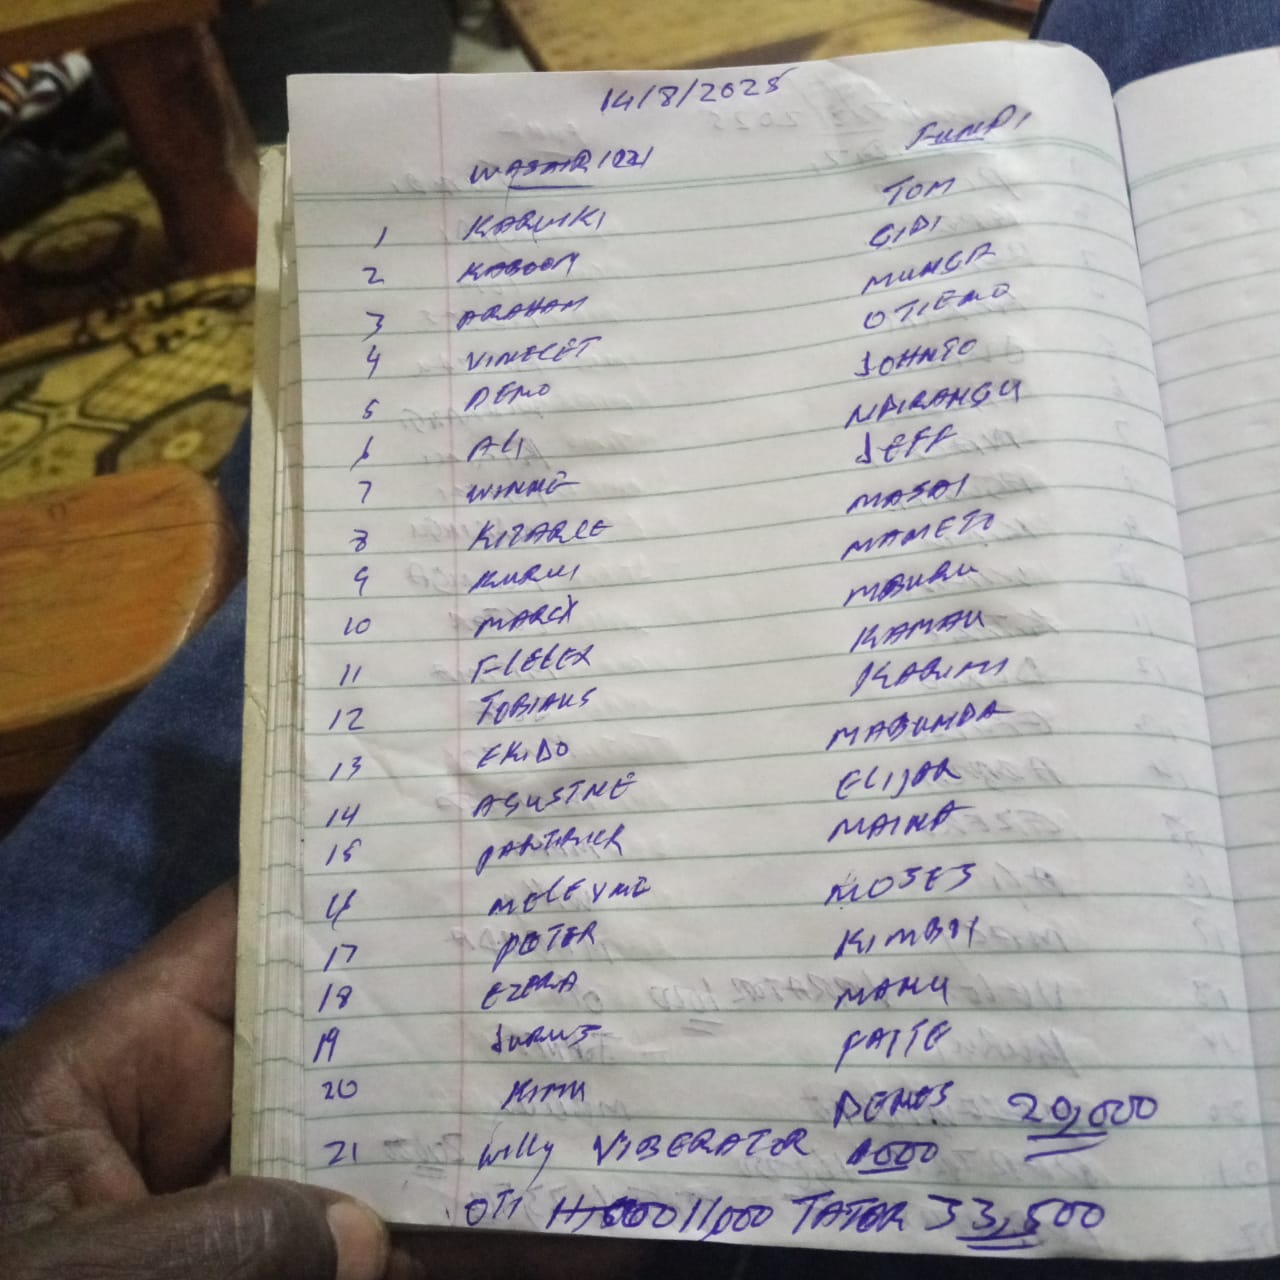 14/8/2025
WASHIRIAZI FUNDI
1 KARIUKI TOM
2 KABOOM GIDI
3 ARAHAM MUNGA
4 VINECET OTIENO
5 DENO JOHNTO
6 ALI NDIRANGU
7 WINNE JEFF
8 KIZAREE MASAI
9 KURUI MANETO
10 MARCX MBURU
11 FLELEX KAMAU
12 TOBIAUS KARIMI
13 EKIDO MABUNDA
14 AGUSTNE ELIJAR
15 PARTRICK MAINA
16 MOSES
17 PETER KIMBOY
18 EZERA MANU
19 JURUS FATTE
20 KIMU DENOS 20,000
21 Willy VIBERATOR 1000
OTI 11,000 TATOR 33,500